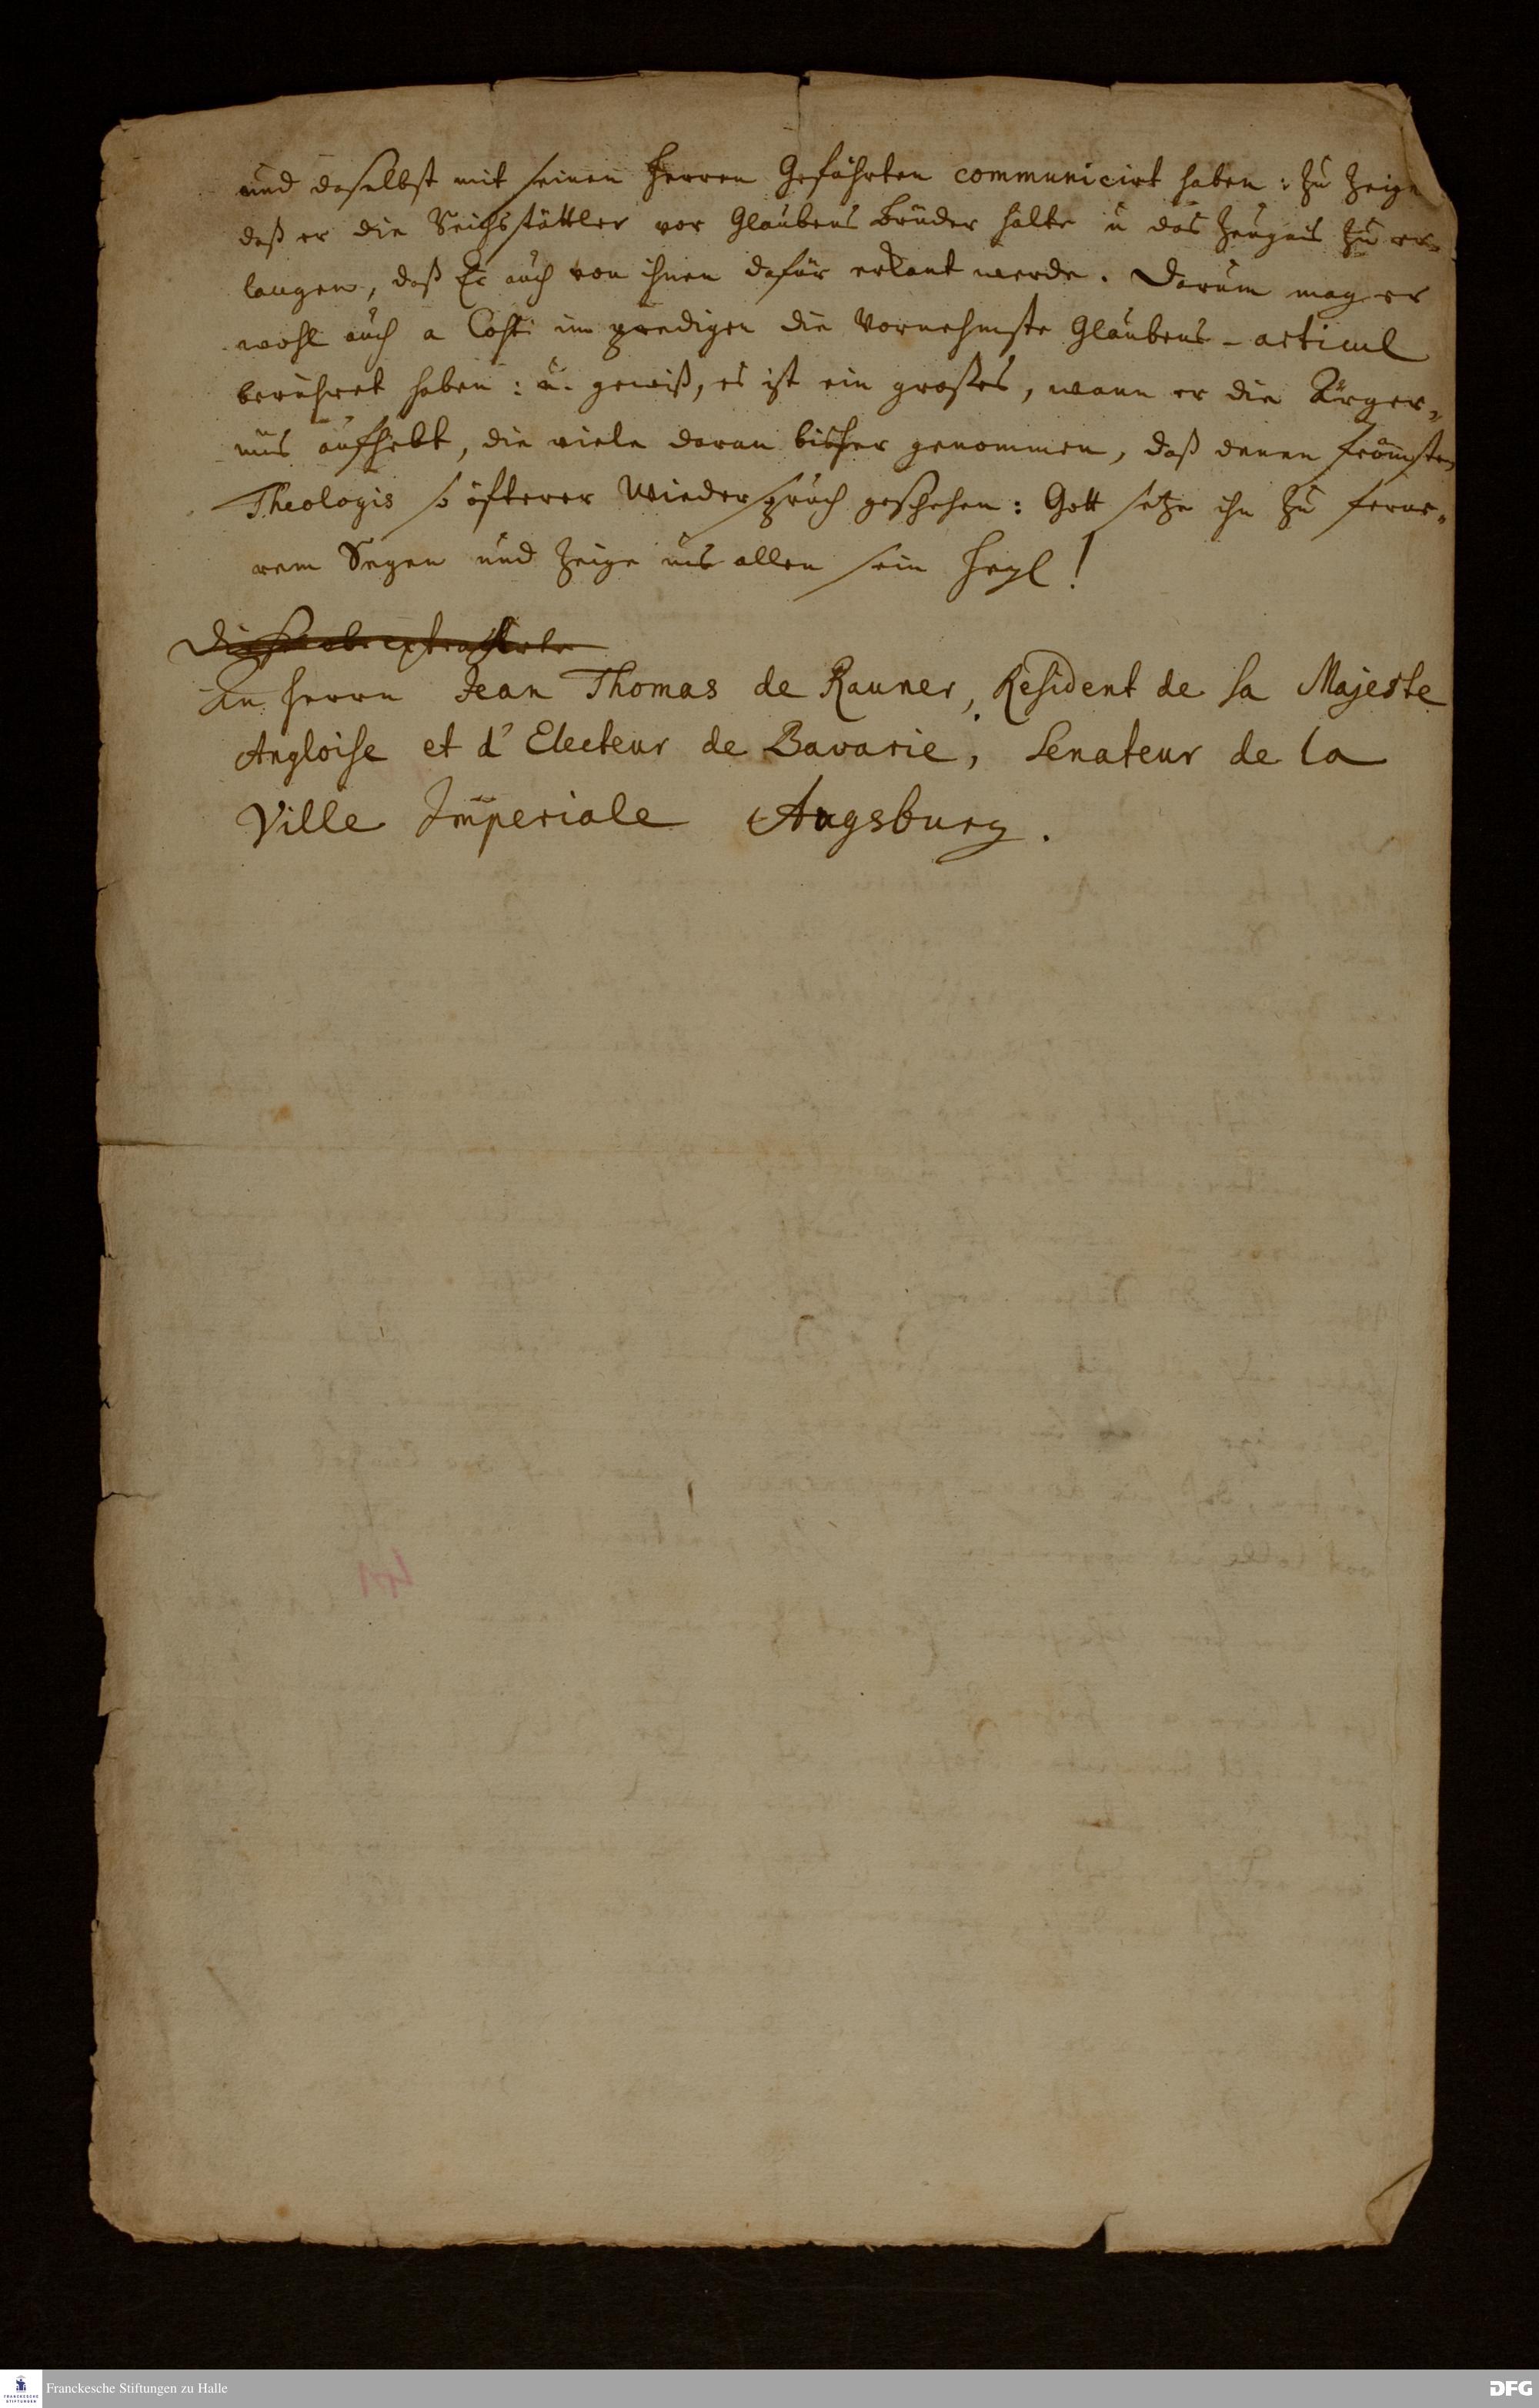 und daselbst mit seinen Herren Gefährten communicirt haben: zu zeige
daß er die Reichsstättler vor Glaubens Brüder halte u das Zeugnis zu er-
langen, daß Er auch von ihnen dafür erkant werde. Darum mag er
wohl auch a Costi im predigen die Vornehmste Glaubens-articul
berühret haben: u. gewiß, es ist ein grosses, wann er die Ärger-
nus aufhebt, die viele daran bisher genommen, daß denen frömsten
Theologis so öfterer Wiederspruch geschehen: Gott setze ihn zu ferne-
rem Segen und zeige uns allen sein Heyl!
An Herrn Jean Thomas de Rauner, Resident de sa Majeste
Angloise et d'Electeur de Bavarie, Senateur de la
Ville Imperiale Augsburg.
Franckesche Stiftungen zu Halle
FRANCKESCHE
STIFTUNGEN
DFG